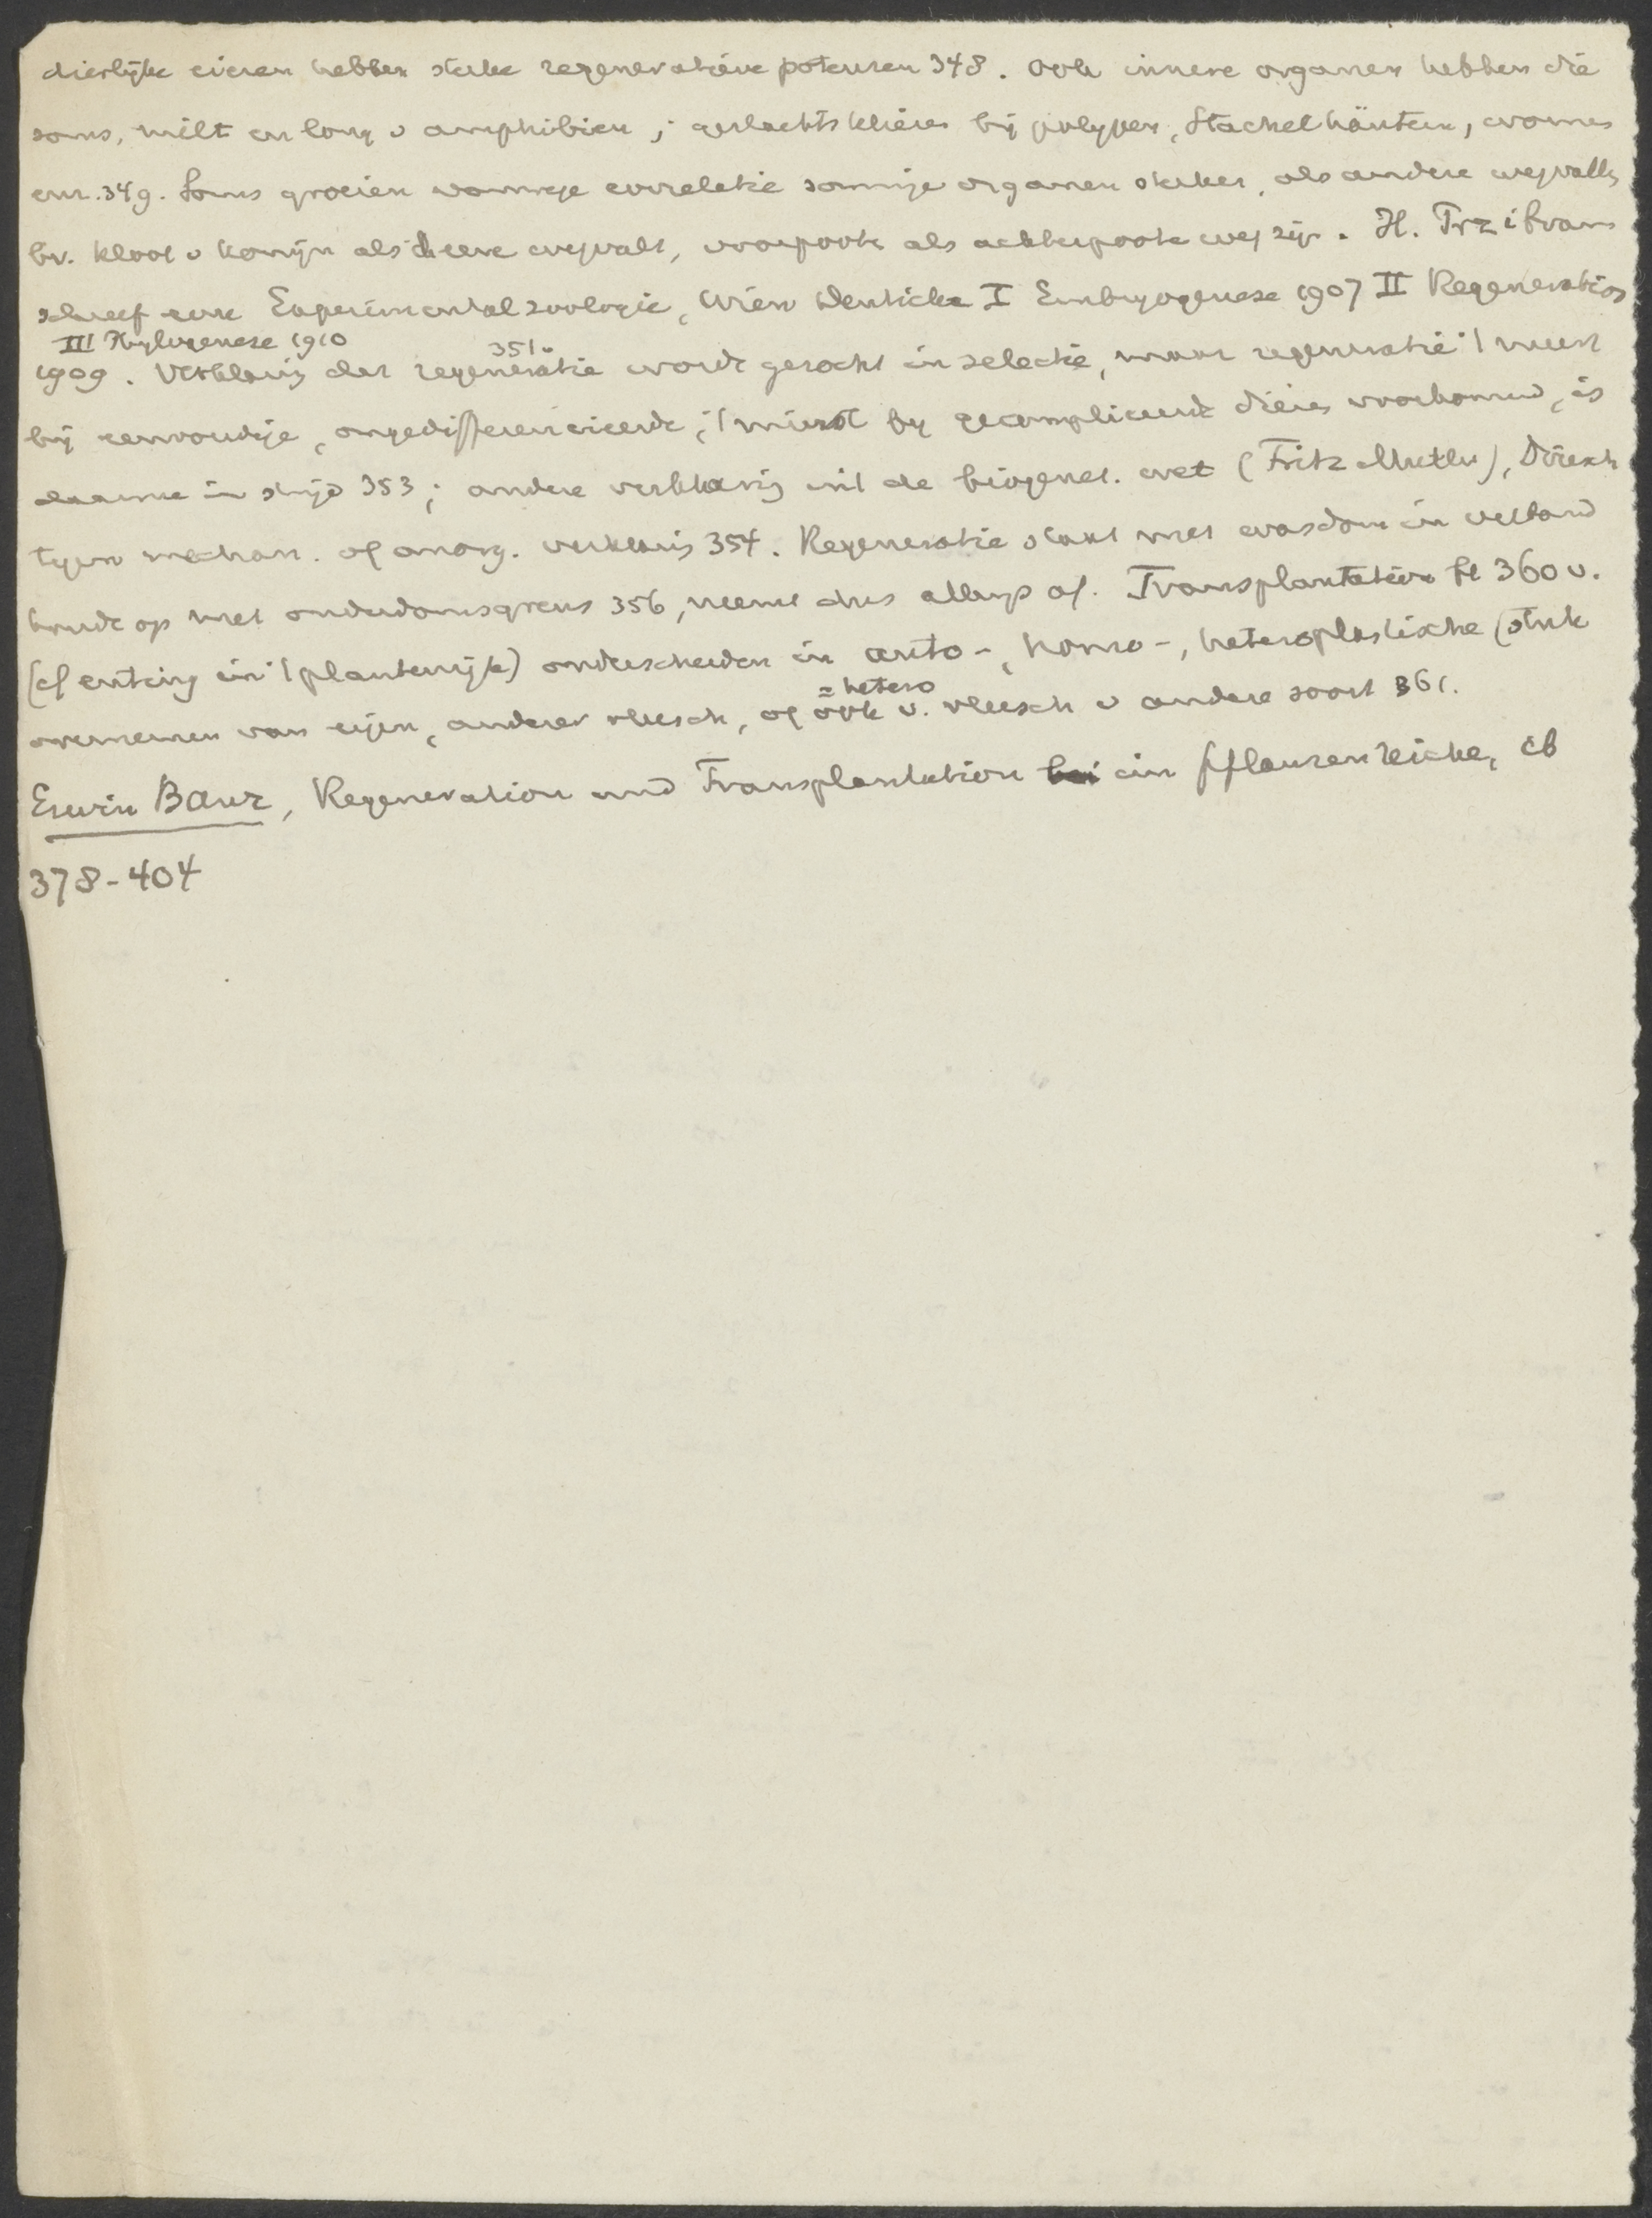 dierlijke eieren hebben sterke regeneratieve potenzen 348. ook innere organen hebben die
soms, milt en long v amphibieën; geslachtsklieren bij polypen, Stachelhäutern, wormen
enz. 349. Soms groeien vanwege correlatie sommige organen sterker, als andere wegvallen
bv. kloot v konijn als d eene wegvalt, voorpoote als achterpoote weg zijn. H. Przibram
schreef eene Experimentalzoologie, Wien Deuticke I Embryogenese 1907 II Regeneration
III Phylogenese 1910
1909. Verklaring der regeneratie 351v wordt gezocht in selectie, maar regeneratie 't meest
bij eenvoudige, ongedifferencieerde, 't minst by gecompliceerde dieren voorkomend, is
daarmee in strijd 353; andere verklaring uit de biogenet. wet (Fritz Müller), Driesch
tegen mechan. of anorg. verklaring 354. Regeneratie staat met wasdom in verband
houdt op met ouderdomsgrens 356, neemt dus allengs af. Transplantation 360 v.
(cf enting in 't plantenrijk) onderscheiden in auto-, homo-, heteroplastische (stuk
= hetero
overnemen van eigen, ander vleesch, of ook v. vleesch v andere soort 361.
Erwin Baur, Regeneration und Transplantation im Pflanzenreiche, ib
378-404